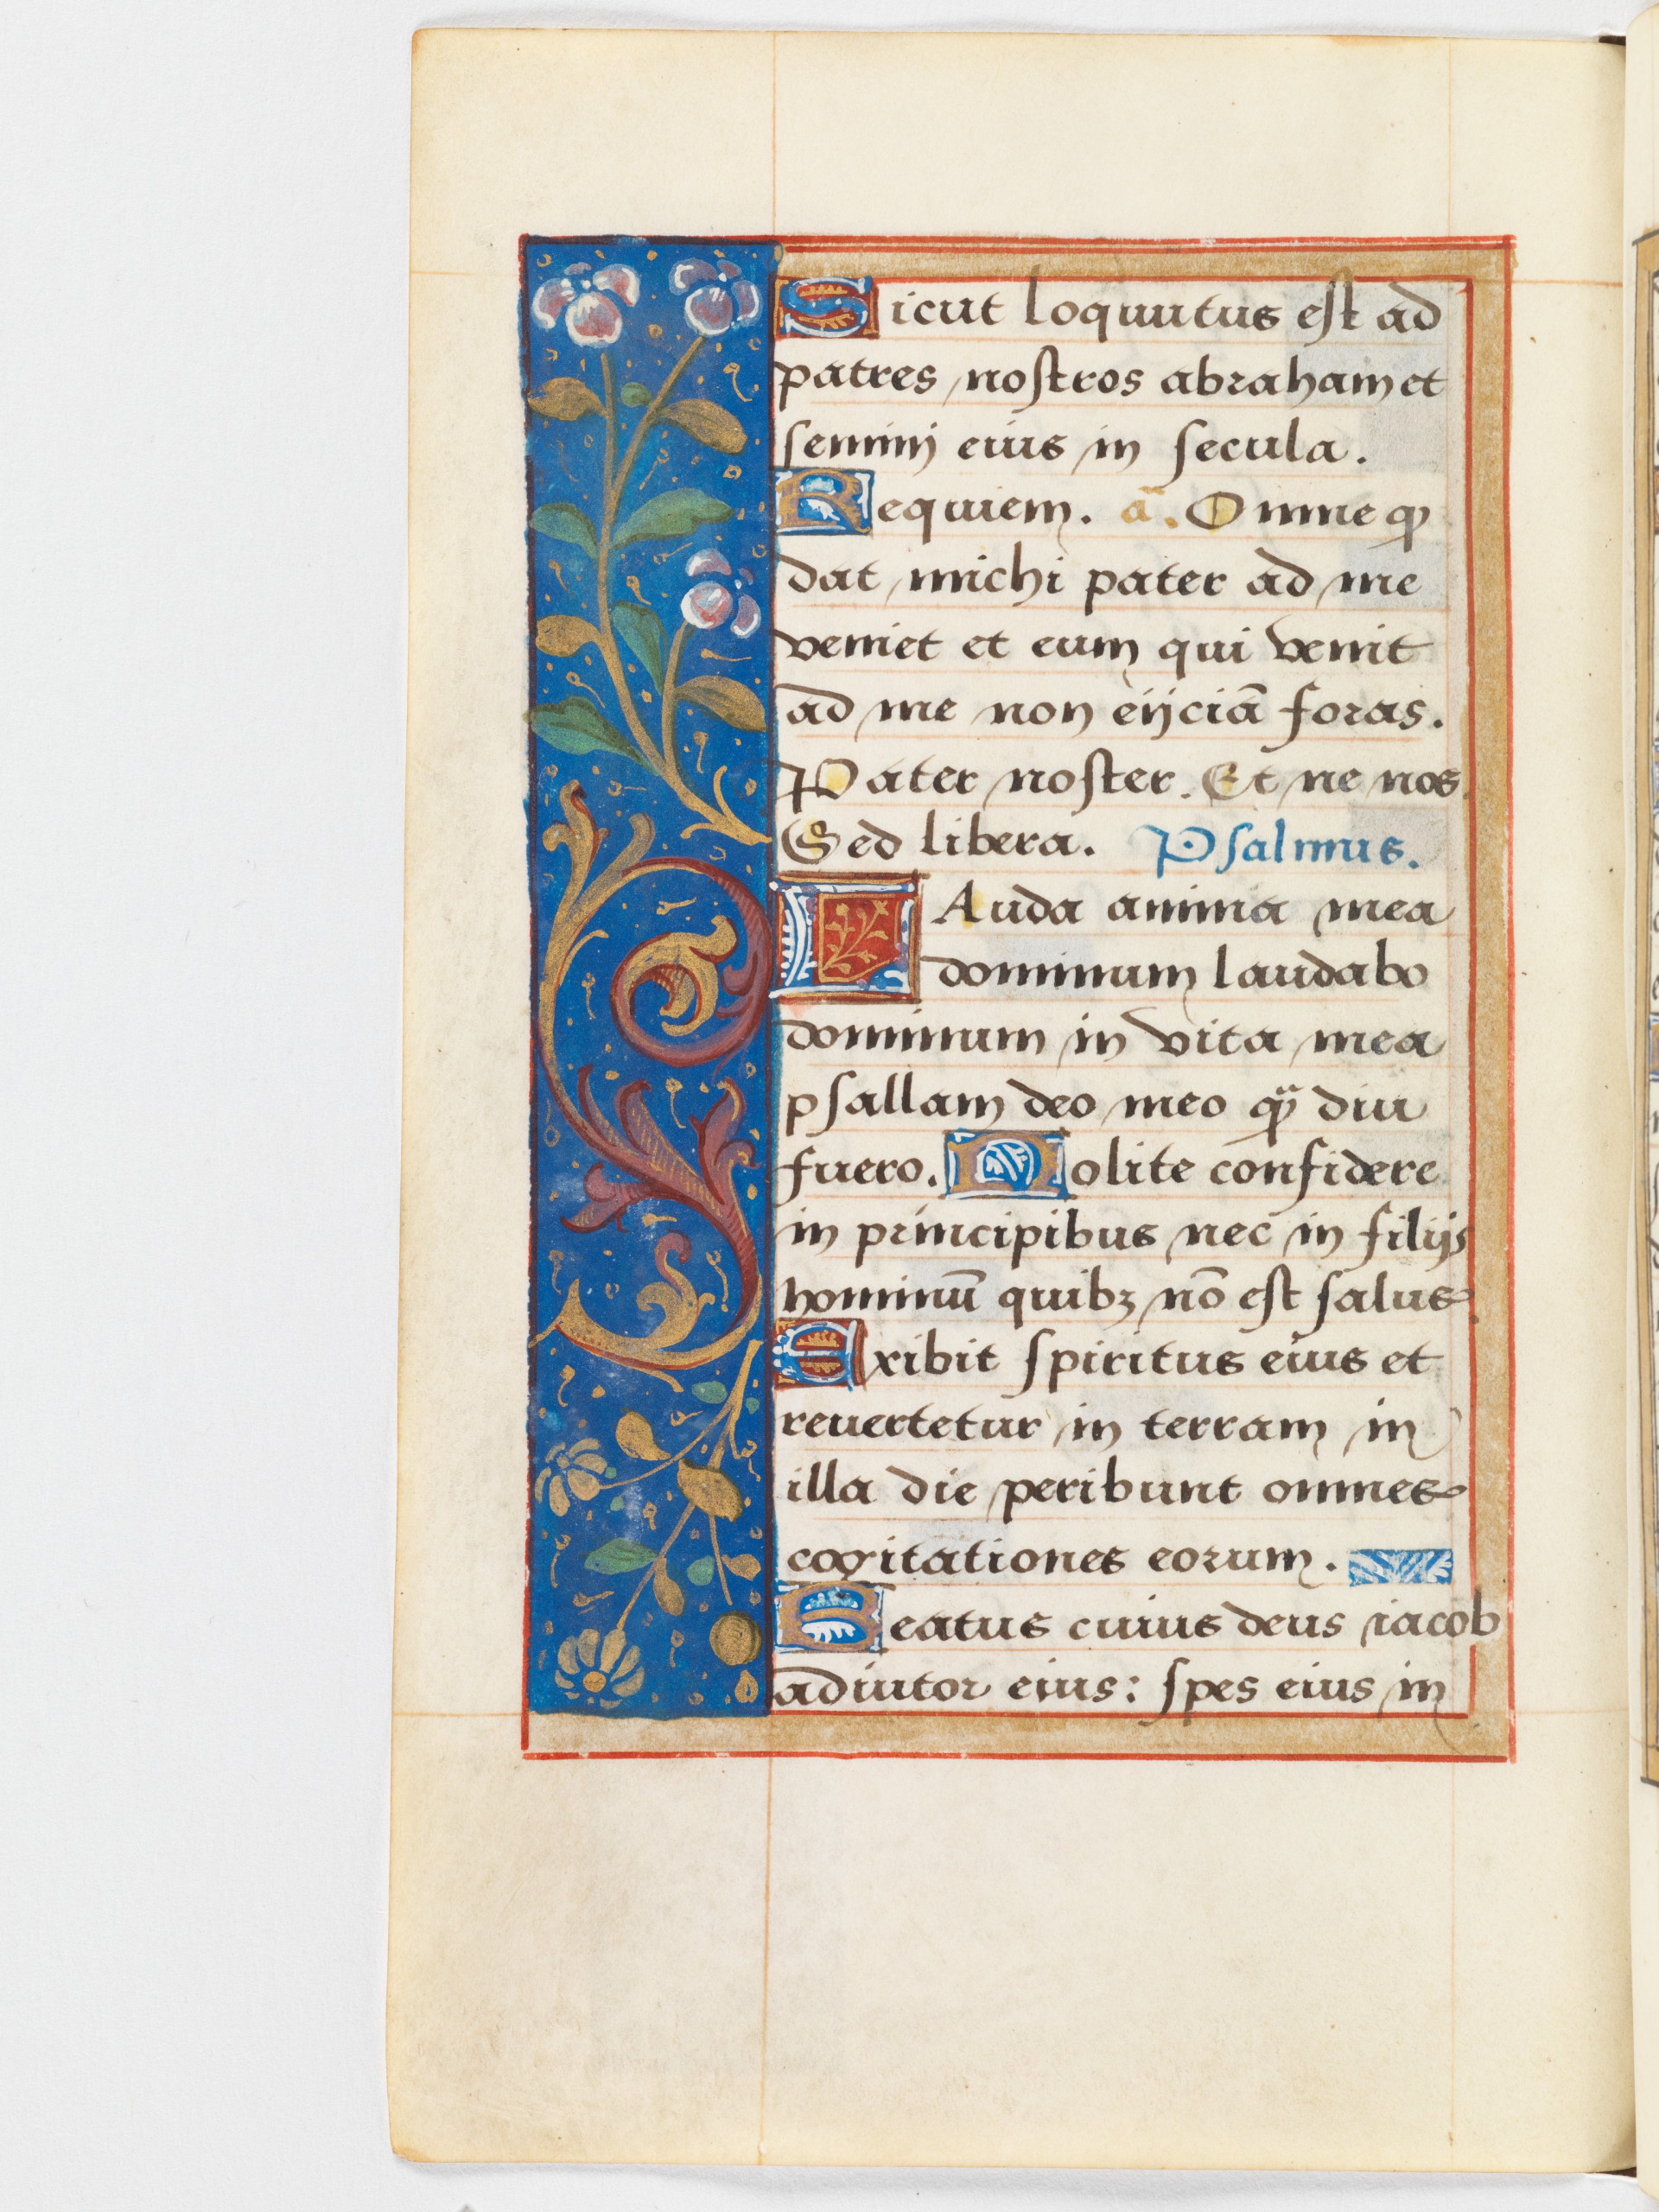 Sicut loquutus est ad
patres nostros abraham et
semini eius in secula.
Requiem. a͞. Omne qꝫ
dat michi pater ad me
veniet et eum qui venit
ad me non eijciā foras.
Pater noster. Et ne nos
Sed libera. Psalmus.
LAuda anima mea
dominum laudabo
dominum in vita mea
psallam deo meo qͣ diu
fuero. Nolite confidere
in principibus nec in filijs
hominū quibꝫ nō est salus
Exibit spiritus eius et
reuertetur in terram in
illa die peribunt omnes
cogitationes eorum.
Beatus cuius deus iacob
adiutor eius: spes eius in